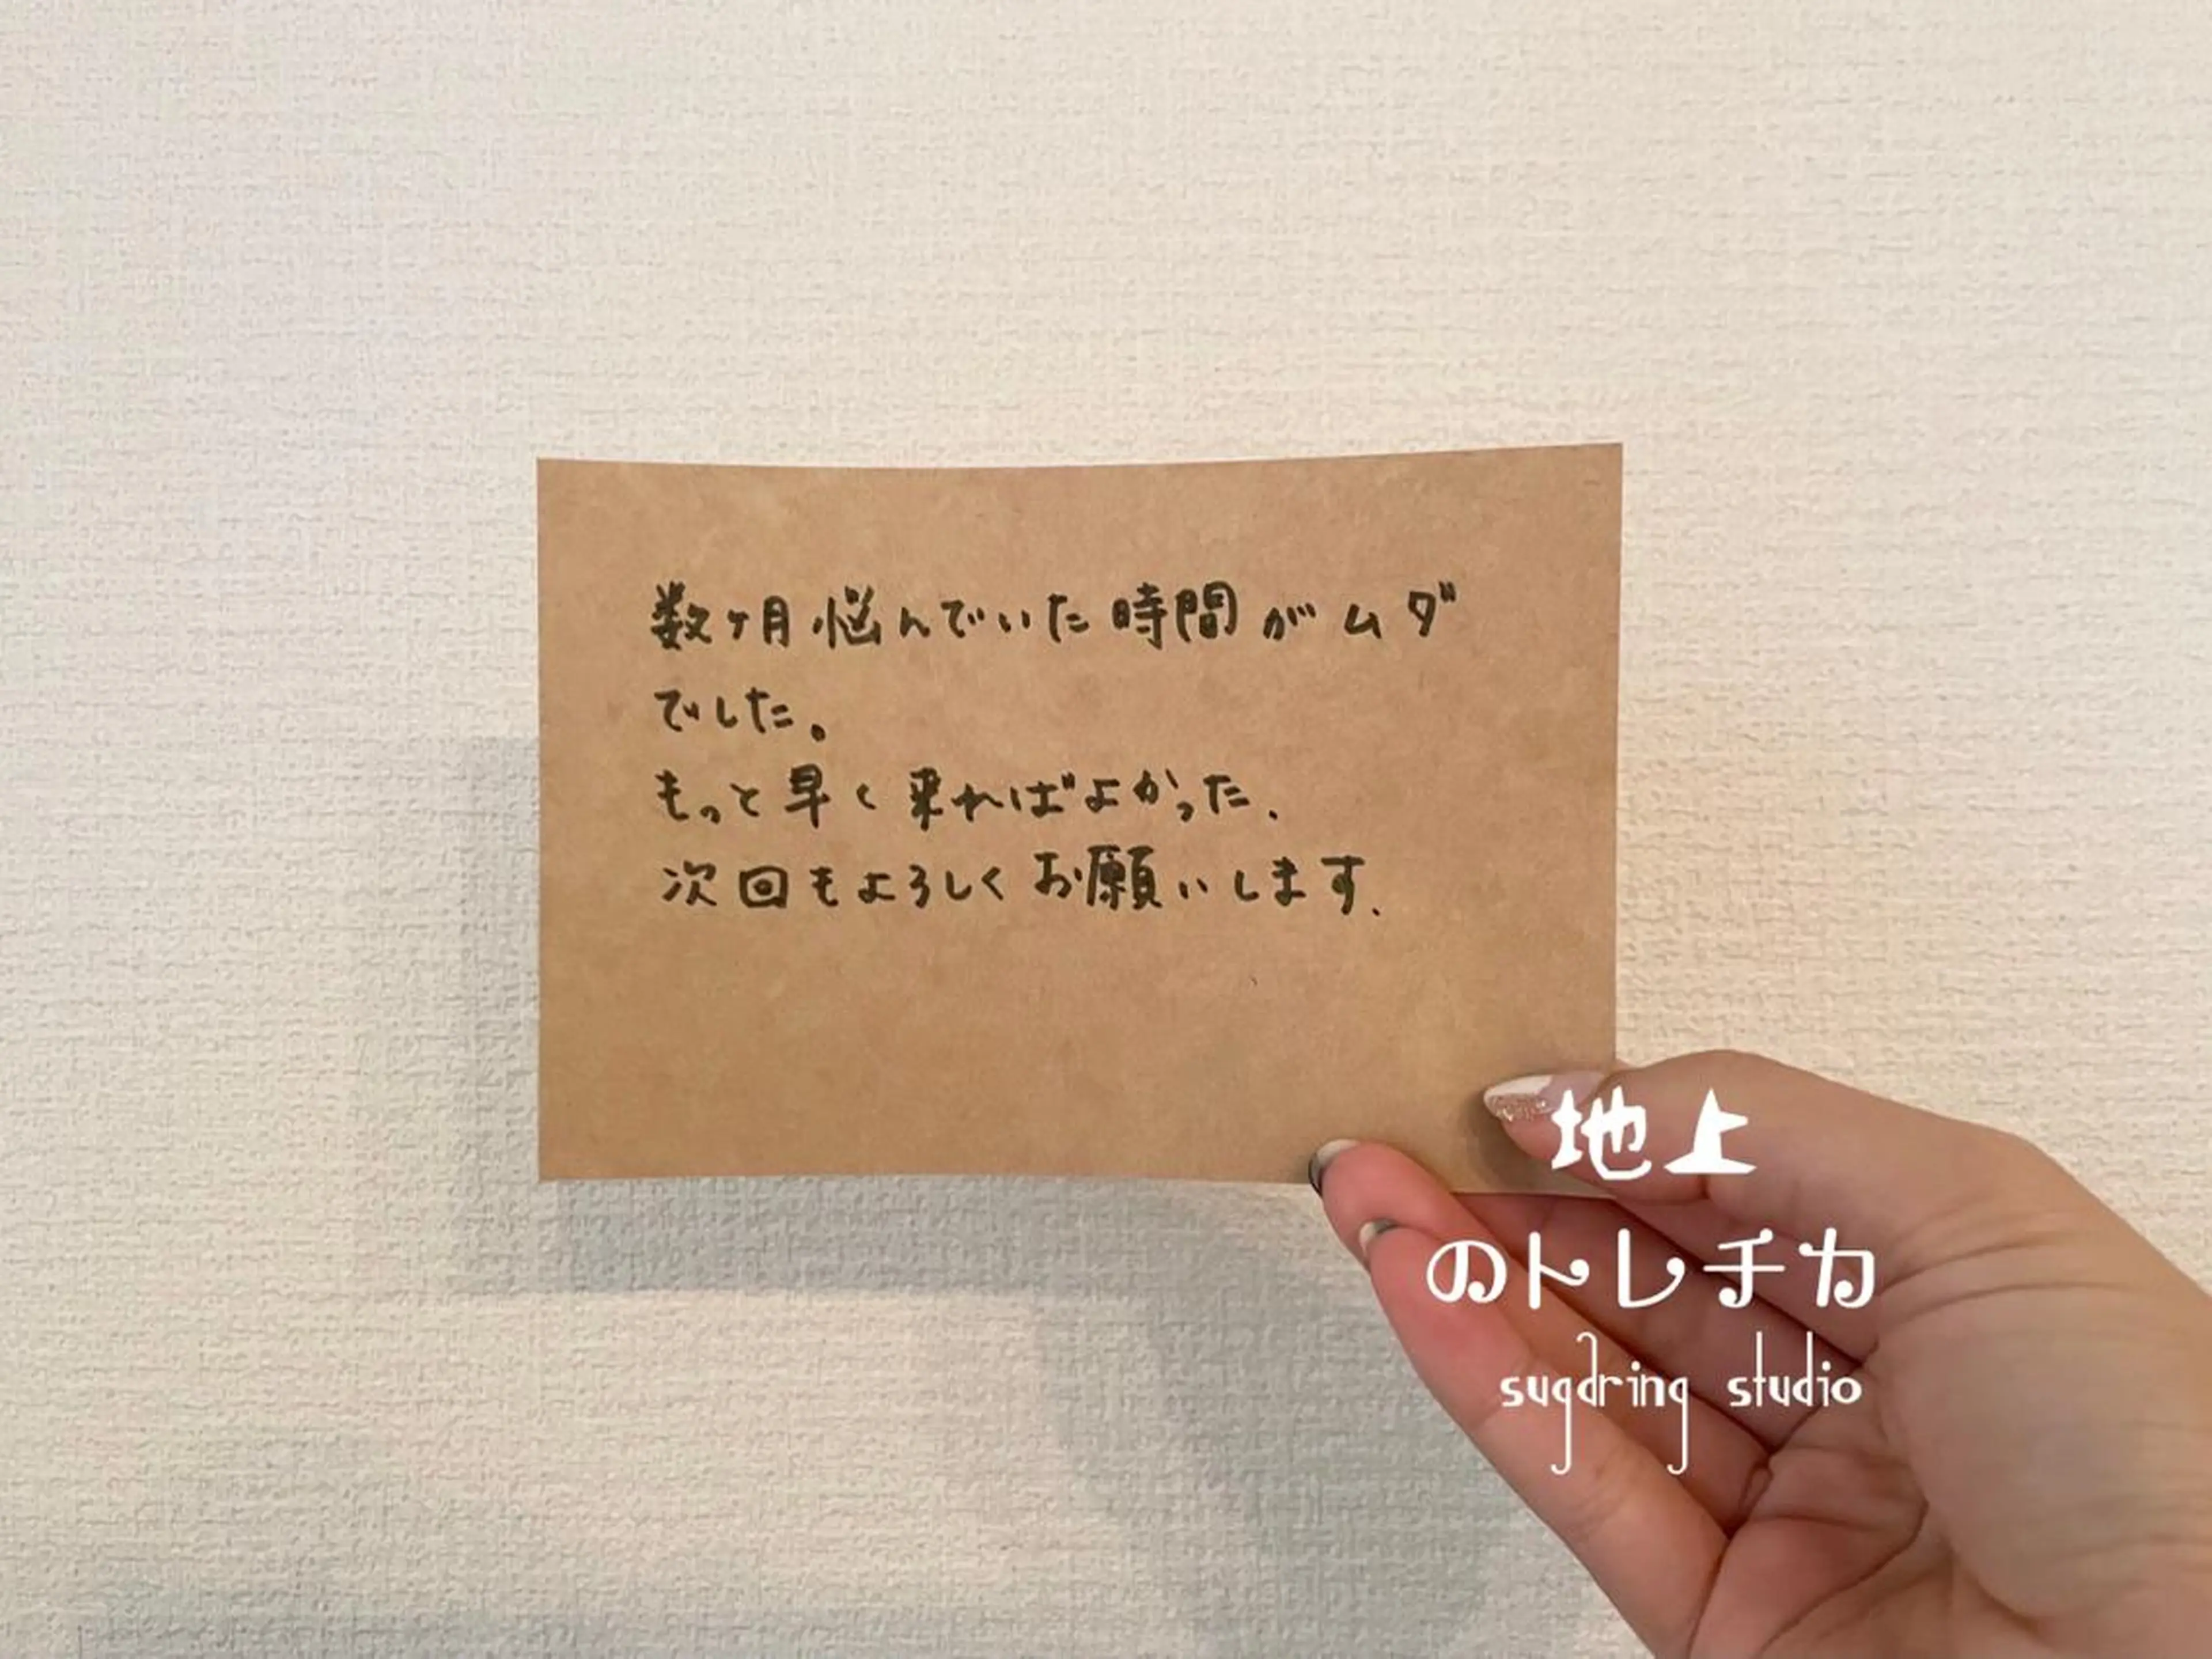 数ヶ月悩んでいた時間がムダ
でした。
もっと早く来ればよかった、
次回もよろしくお願いします、
地上
のトレチカ
sugaring studio